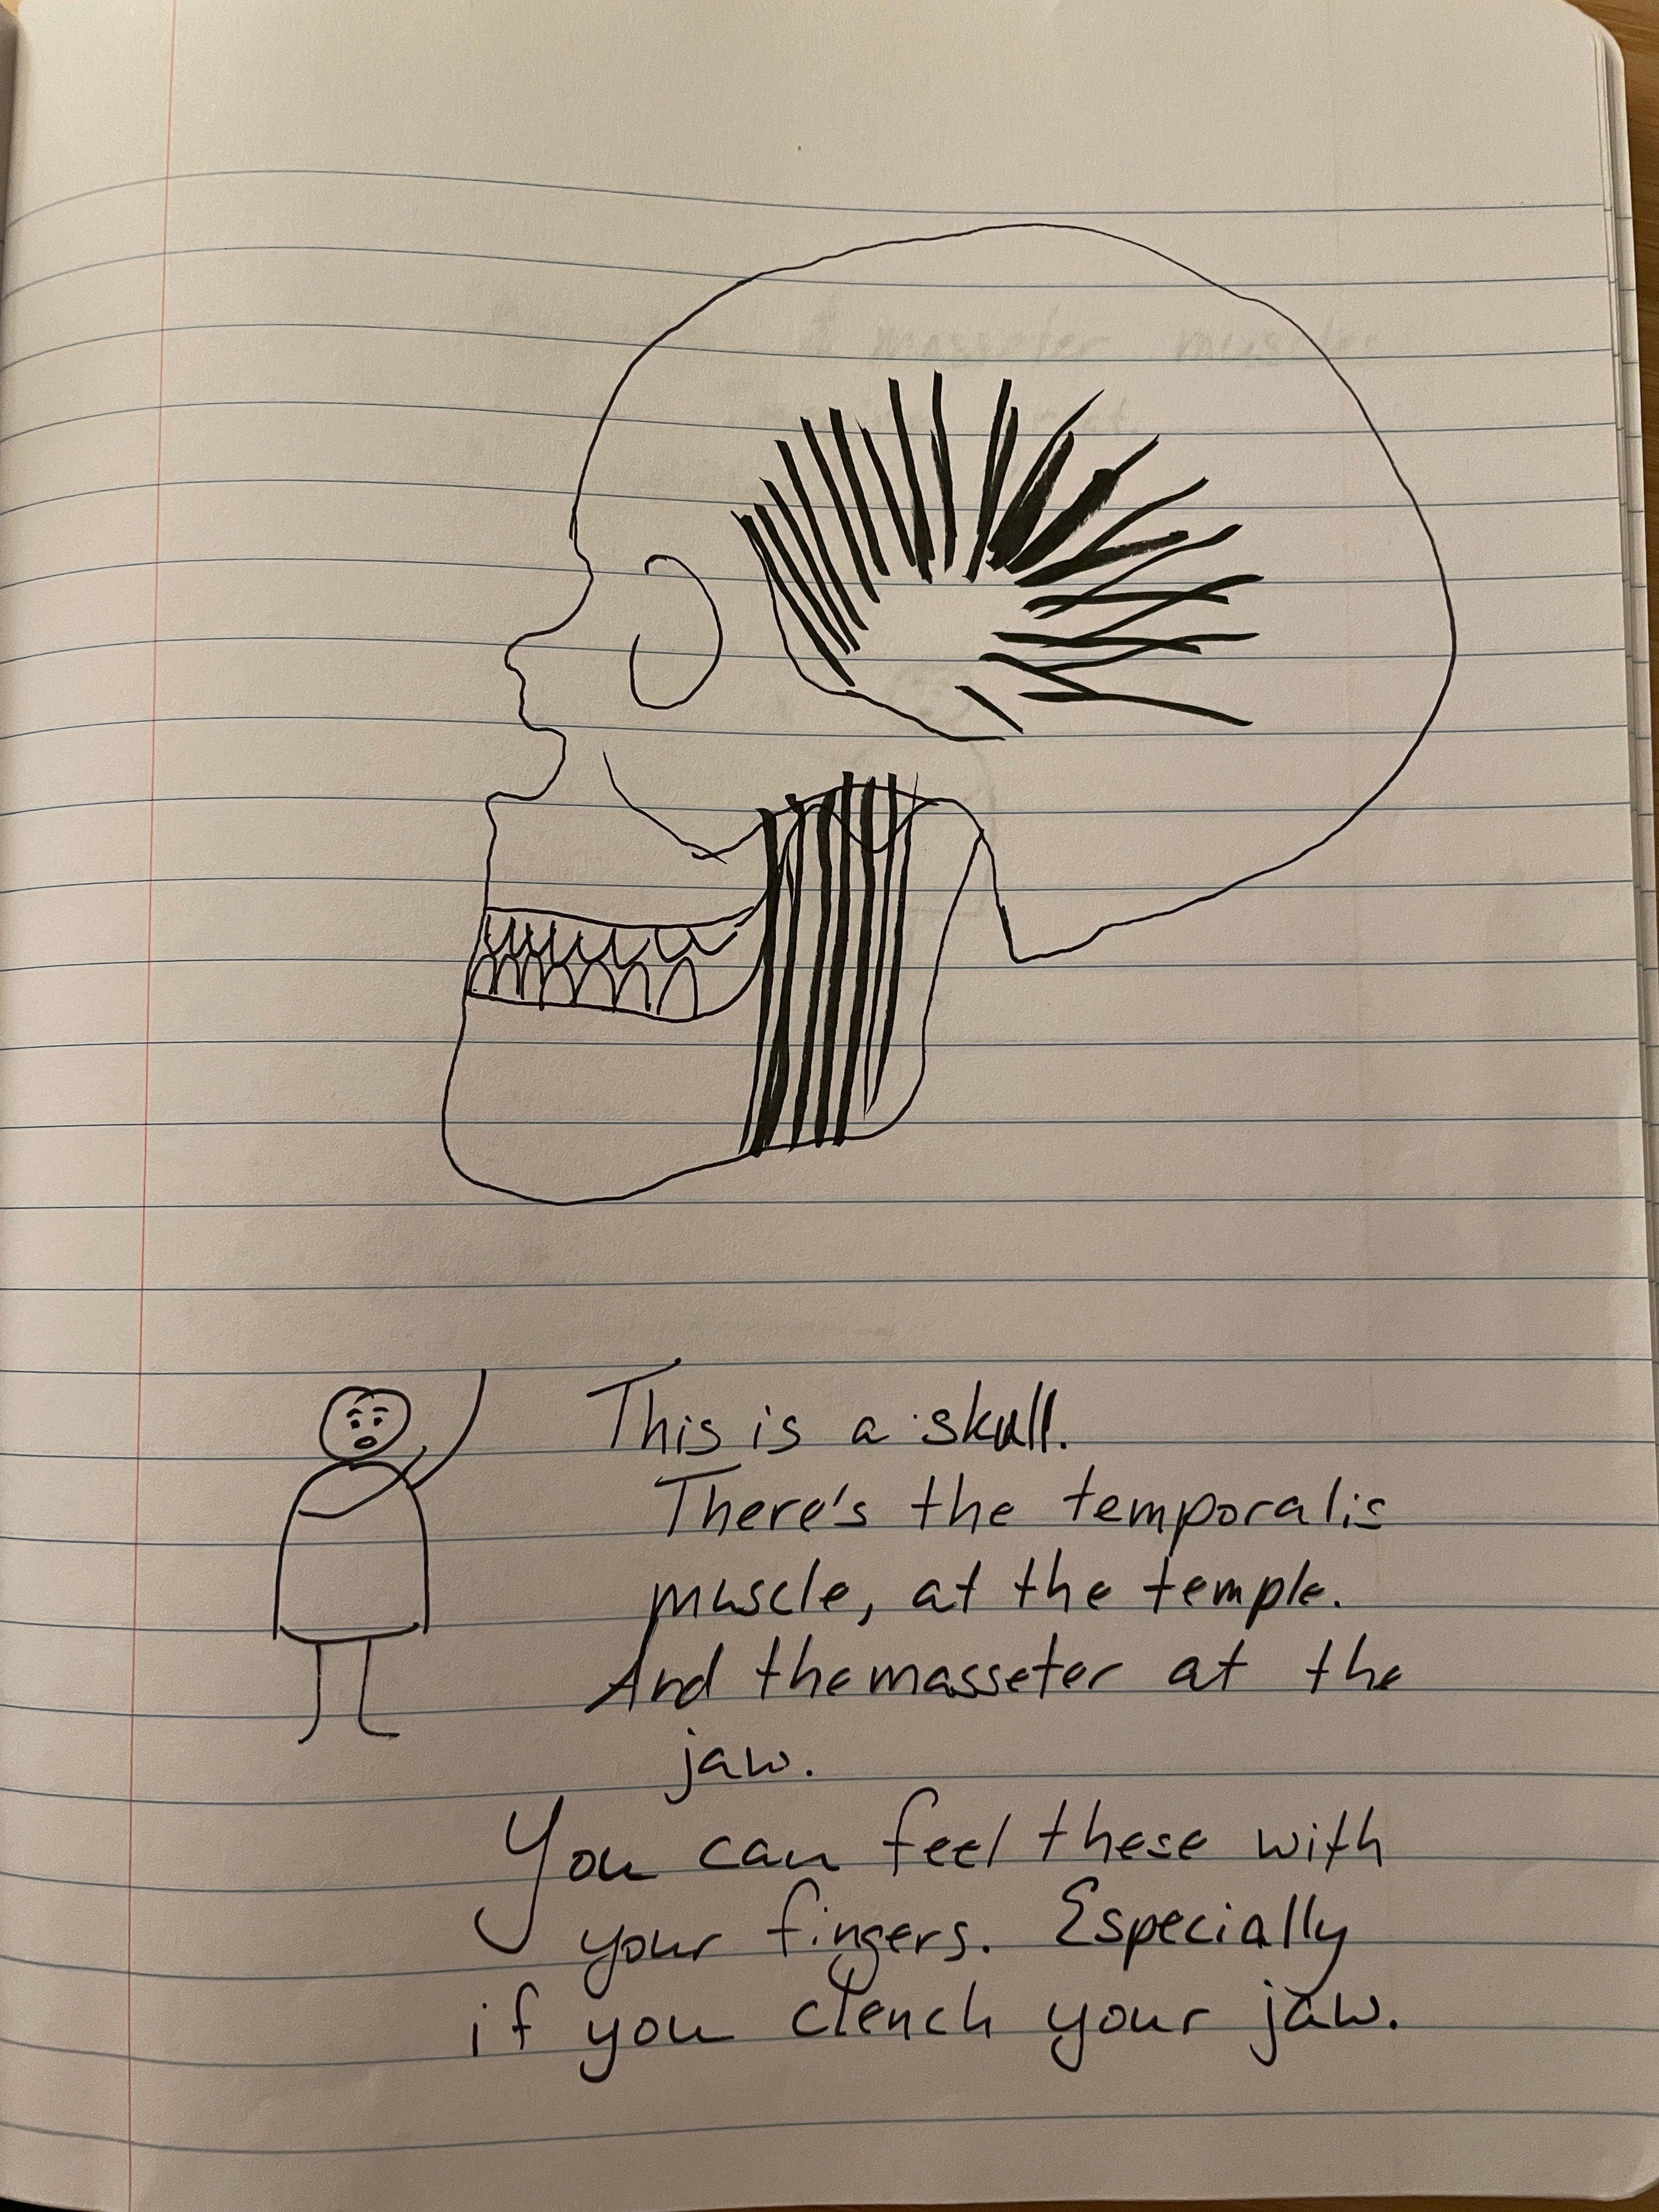 This is a skull.
There's the temporalis
muscle, at the temple.
And the masseter at the
jaw.
You can feel these with
your fingers. Especially
if you clench your jaw.